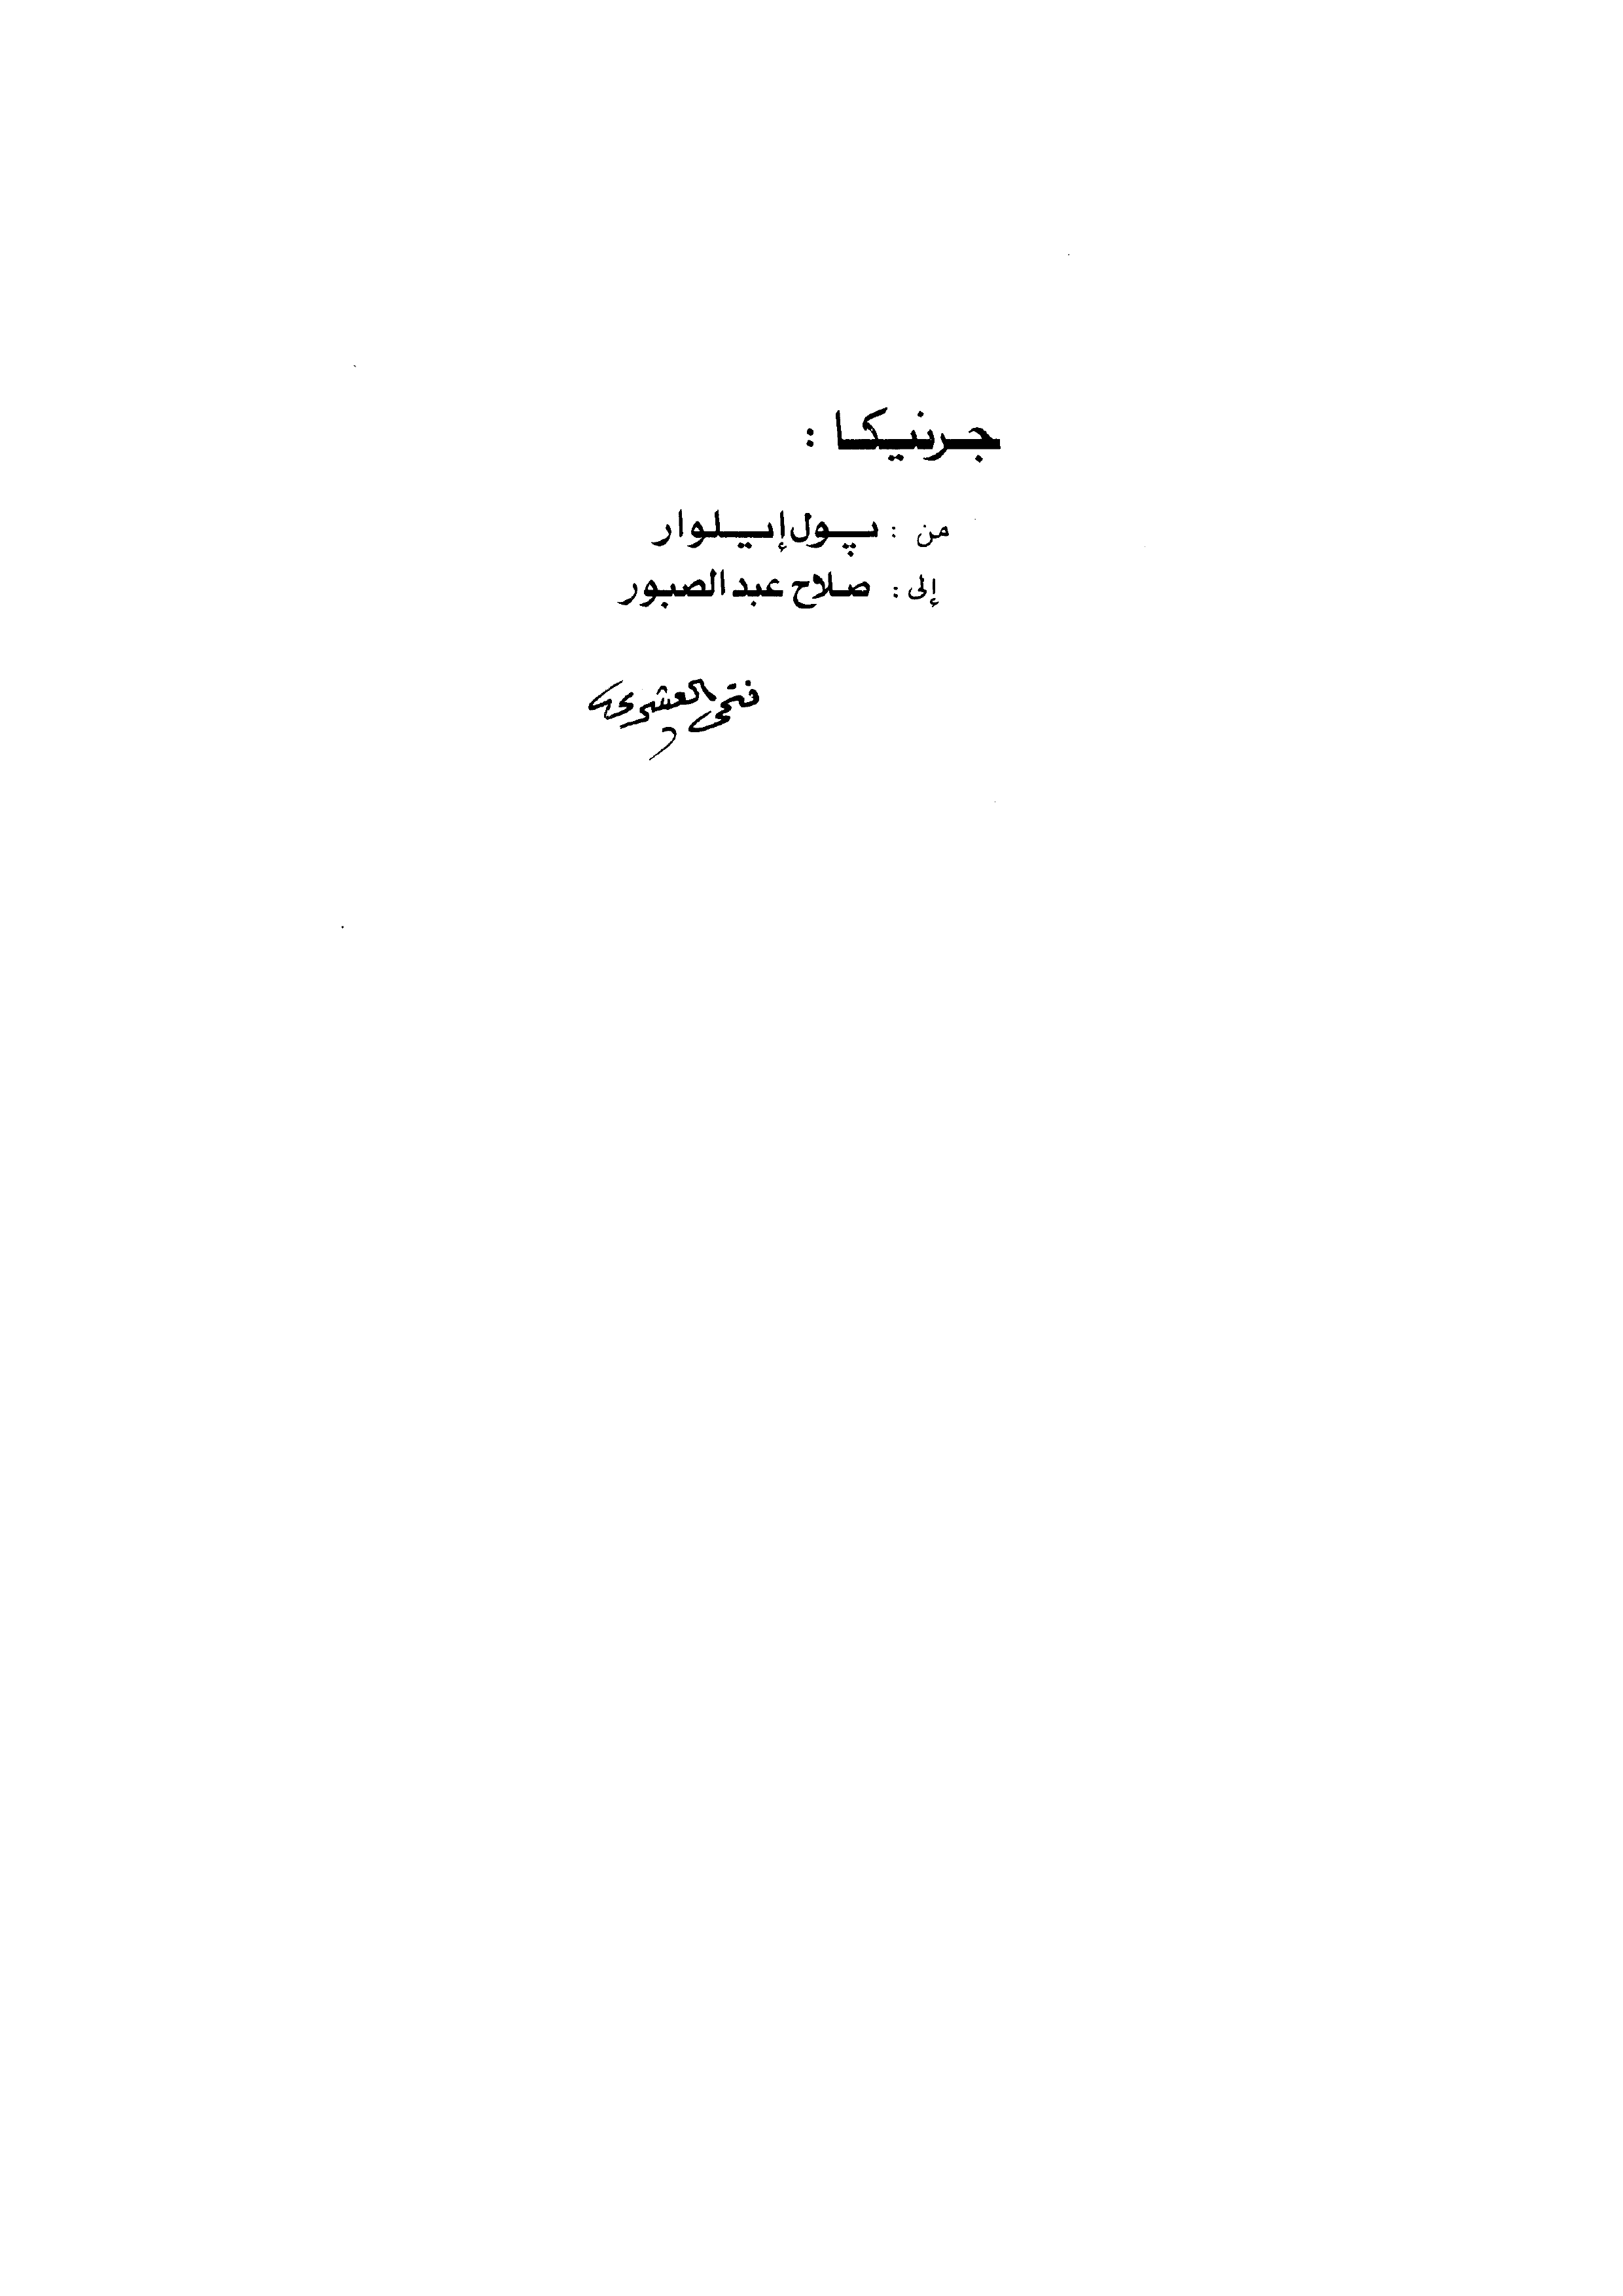 جرنيكا :
من : پول إيلوار
إلى : صلاح عبد الصبور
فتحى العشرى